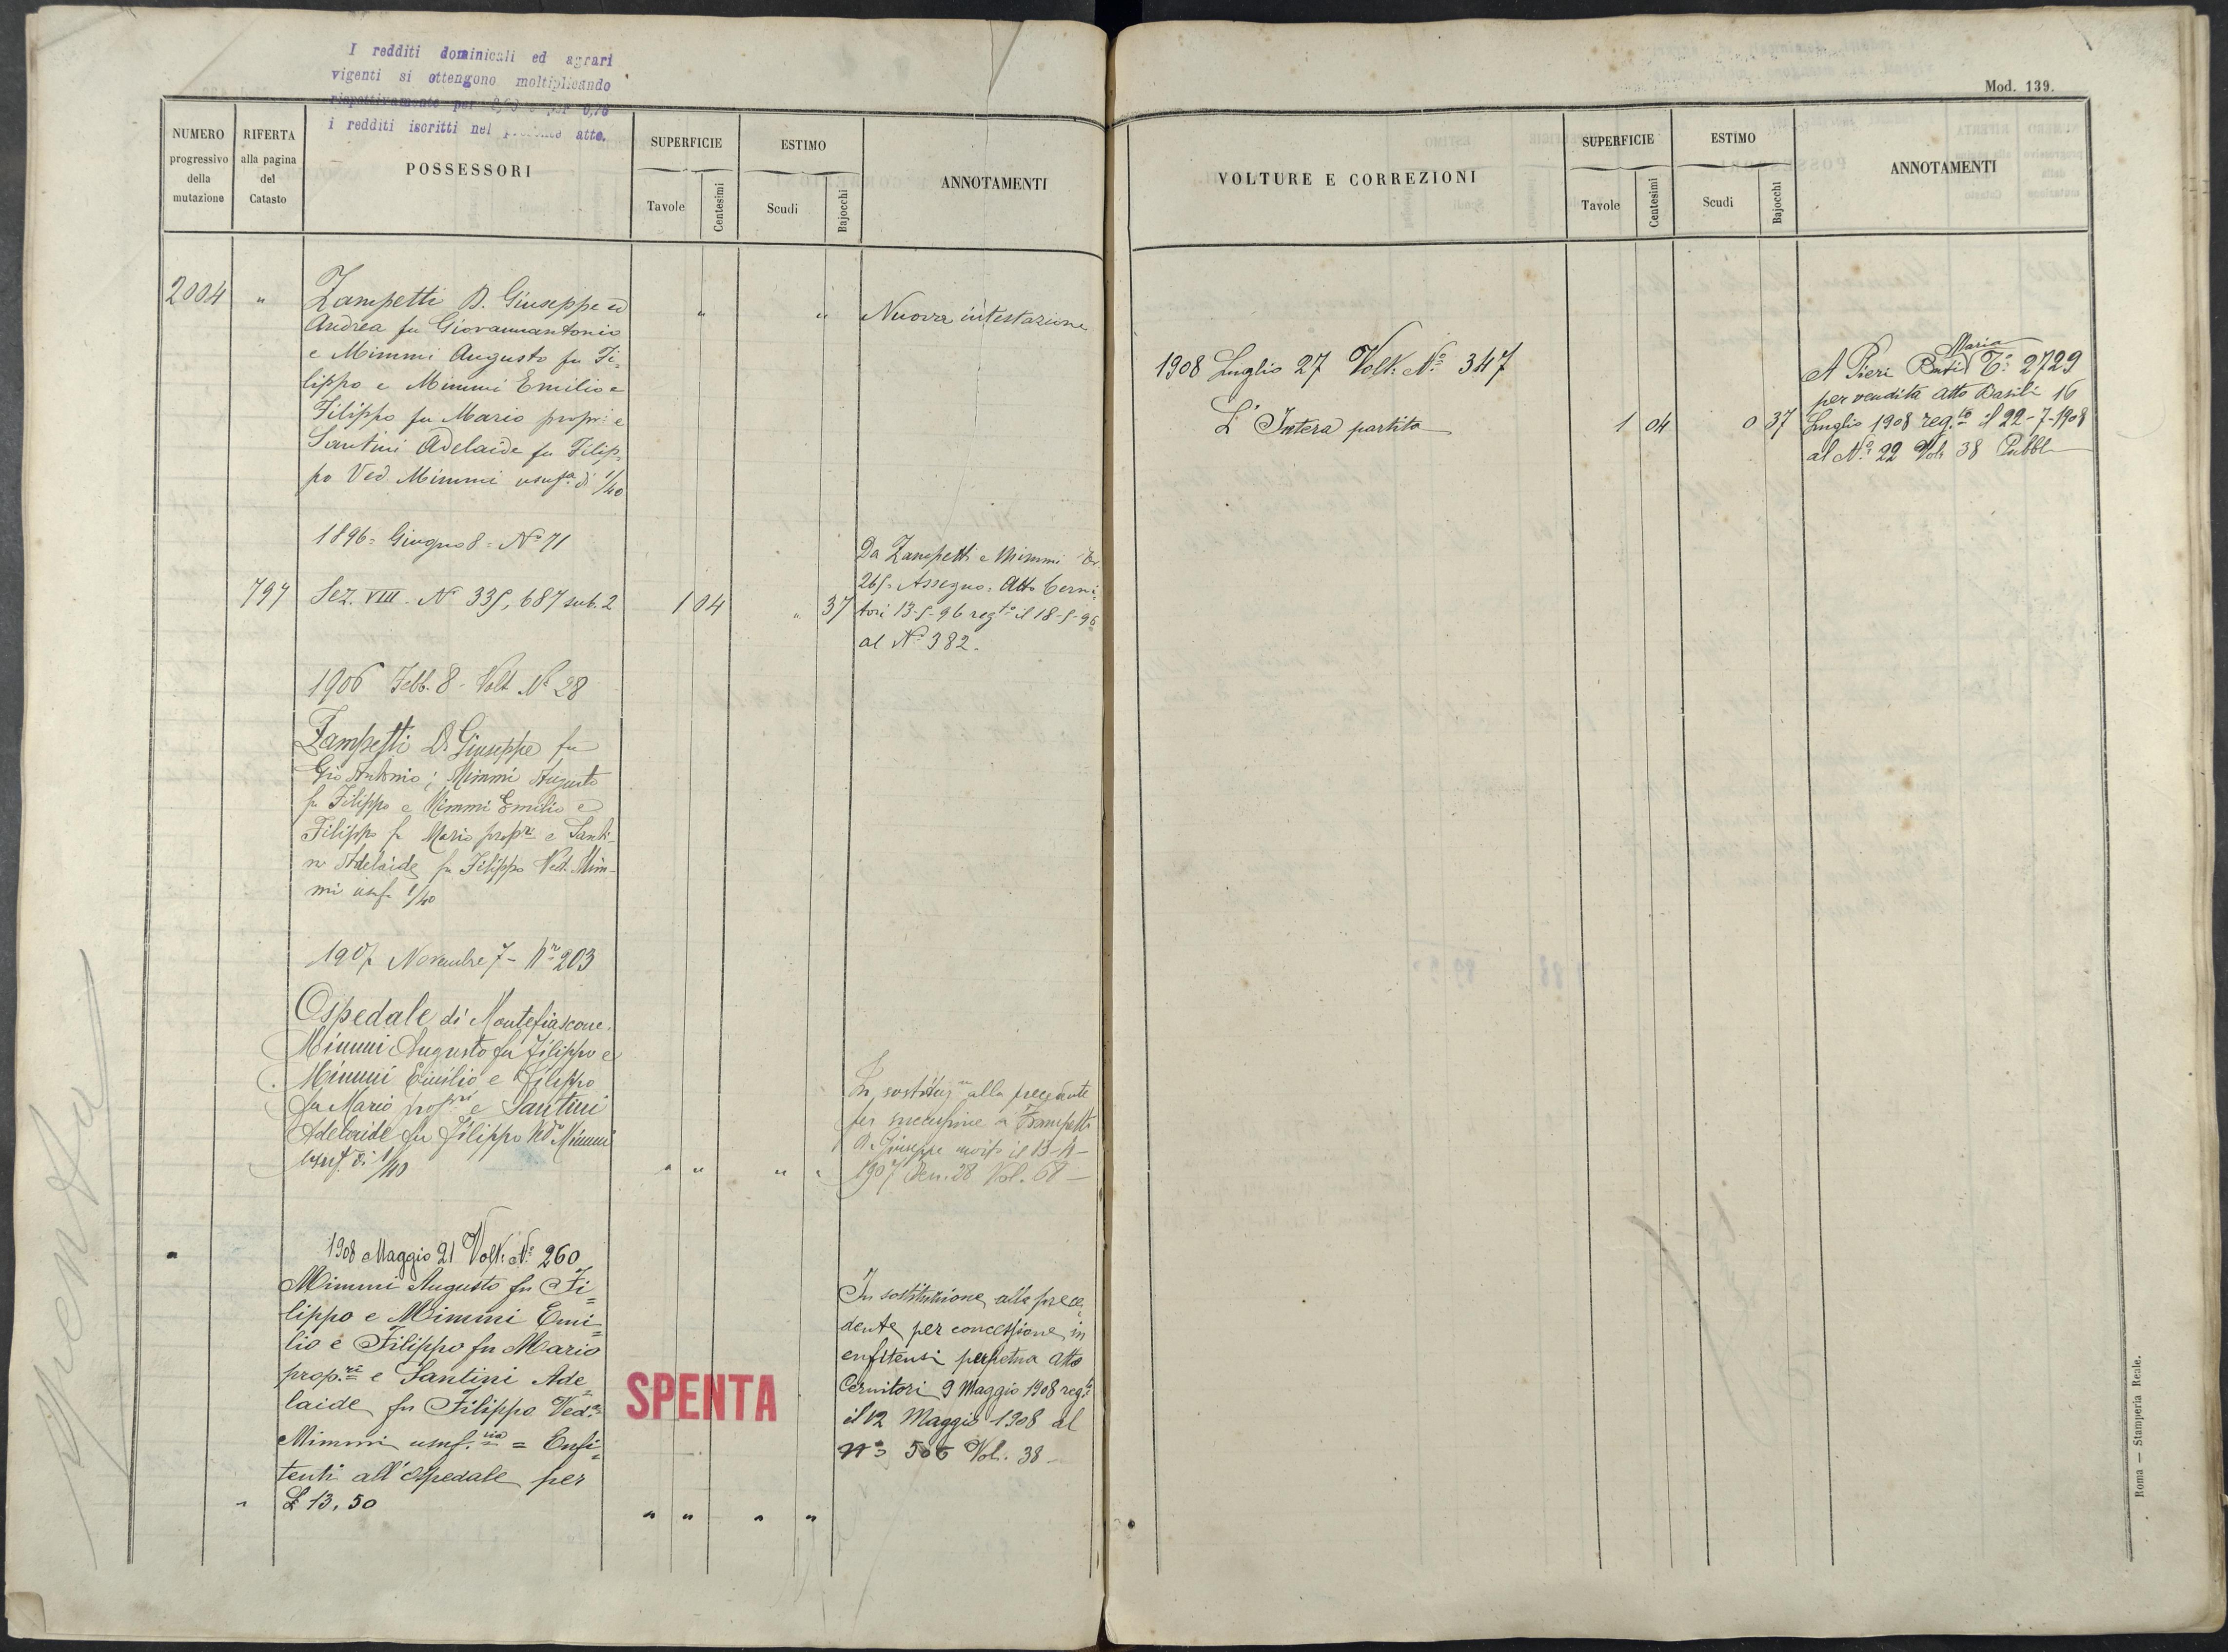 I redditi dominicali ed agrari
vigenti si ottengono moltiplicando
rispettivamente per per 0,76
i redditi iscritti nel presente atto.
NUMERO
progressivo
della
mutazione
RIFERTA
alla pagina
del
Catasto
POSSESSORI
SUPERFICIE
Tavole
Centesimi
ESTIMO
Scudi
Bajocchi
ANNOTAMENTI
2004 " Zampetti D. Giuseppe ed " " Nuova intestazione
Andrea fu Giovannantonio
e Mimmi Augusto fu Fi=
lippo e Mimmi Emilio e
Filippo fu Mario propri e
Santini Adelaide fu Filip=
po Ved. Mimmi usufa. di 1/40
1896= Giugno 8= No 71
797 Sez. VIII - No 335, 687 sub. 2 1 04 " 37
Da Zampetti e Mimmi
265= Assegno= Atto Cerni=
tori 13-5-96 regto il 18-5-96
al No 382.
1906 Febb. 8 - Volt. No 28
Zampetti D. Giuseppe fu
Gio Antonio; Mimmi Augusto
fu Filippo e Mimmi Emilio e
Filippo fu Mario propri e Santi-
ni Adelaide fu Filippo Ved. Mim-
mi usuf. 1/40
1907 Novembre 7 - No 203
Ospedale di Montefiascone.
Mimmi Augusto fu Filippo e
Mimmi Emilio e Filippo
fu Mario propri e Santini
Adelaide fu Filippo Ved. Mimmi
usuf. di 1/40 " " " "
In sostituzne alla precedente
per successione a Zampetti
D. Giuseppe morto il 13-4-
1907 Den. 28 Vol. 68 -
1908 Maggio 21 Volt. No 260
Mimmi Augusto fu Fi=
lippo e Mimmi Emi=
lio e Filippo fu Mario
prop.ri e Santini Ade=
laide fu Filippo Ved.a
Mimmi usuf.ria = Enfi=
tenti all'Ospedale per
" £ 13,50 " " " "
In sostituzione alla prece=
dente per concessione in
enfiteusi perpetua atto
Cernitori 9 Maggio 1908 reg.to
il 12 Maggio 1908 al
No 506 Vol. 38 -
SPENTA
Spenta
Mod. 139.
VOLTURE E CORREZIONI
SUPERFICIE
Tavole
Centesimi
ESTIMO
Scudi
Bajocchi
ANNOTAMENTI
1908 Luglio 27 Volt. No 347
L'Intera partita 1 04 0 37
Maria
A Pieri To 2729
per vendita atto Basili 16
Luglio 1908 reg.to il 22-7-1908
al No 22 Vol. 38 Pubbl.
Roma — Stamperia Reale.